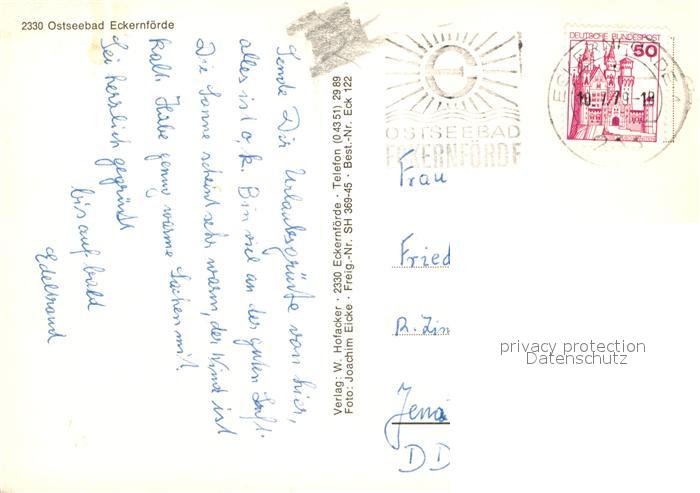 2330 Ostseebad Eckernförde
Sende Dir Urlaubsgrüße von hier,
alles ist o.k. Bin viel an der guten Luft.
Die Sonne scheint sehr warm, der Wind ist
kalt. Habe genug warme Sachen mit.
Sei herzlich gegrüßt
bis auf bald
Edeltraud
Verlag: W. Hofacker · 2330 Eckernförde · Telefon (0 43 51) 29 89
Foto: Joachim Eicke · Freig.-Nr. SH 369-45 · Best.-Nr. Eck 122
OSTSEEBAD
ECKERNFÖRDE
DEUTSCHE BUNDESPOST
50
ECKERNFÖRDE 1
10.7.79-18
Frau
Fried
R. Zin
Jena
DD
privacy protection
Datenschutz